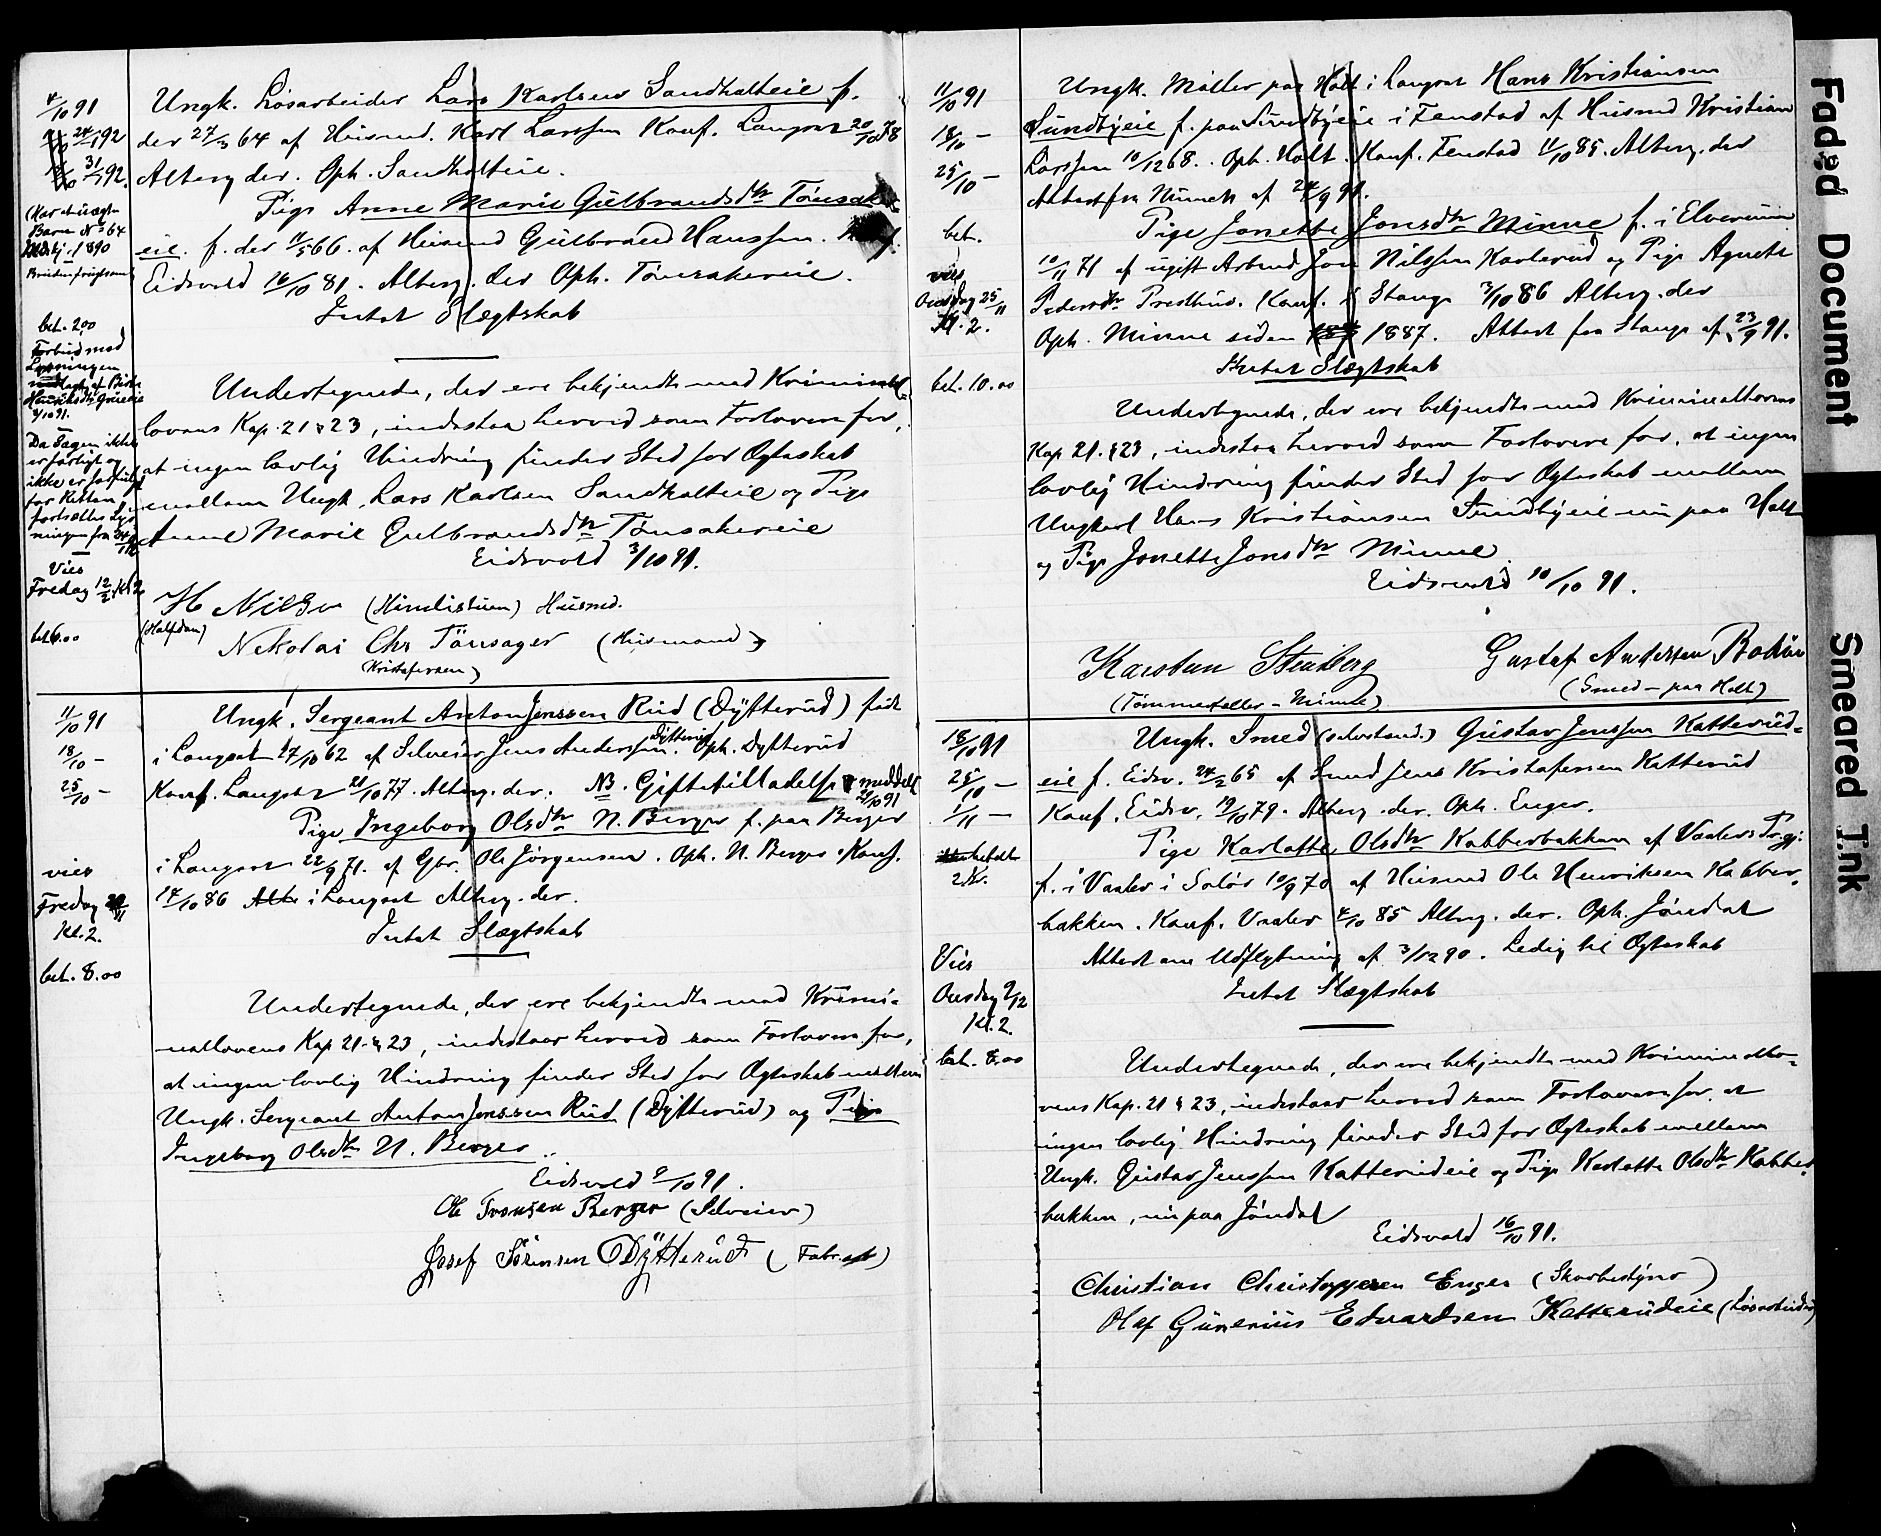 4/10 91
24/1 92
31/1 92.
(Har et uægte
Barn No 64
1890
bet. 2.00
Forbud mod
Lysningen
8/10 91.
Da Sagen ikke
er
ikke er
for Retten
fortsættes Lys-
ningen fra 24/1
Vies
Fredag 12/2 Kl 2
bet 6.00
Ungk. Løsarbeider Lars Karlsen Sandholteie f.
der 27/3 64 af Husmd. Karl Larssen Konf. Langset 20/10 78
Alterg der. Oph. Sandholteie.
Pige Anne Marie Gulbrandsdtr Tønsaker-
eie f. der 11/5 66. af Husmd Gulbrand Hanssen.
Eidsvold 16/10 81. Alterg. der Oph. Tønsakereie.
Intet Slægtskab
Undertegnede, der ere bekjendte med Kriminal-
lovens Kap. 21 § 23, indestaa herved som Forlovere for,
at ingen lovlig Hindring finder Sted for Ægteskab
mellem Ungk. Lars Karlsen Sandholteie og Pige
Anne Marie Gulbrandsdtr Tønsakereie
Eidsvold 3/10 91.
H Nilsen (Himlistuen) Husmd.
(Halfdan)
Nikolai Chr Tönsager (Husmand)
Kristofersen)
11/10 91
18/10 —
25/10 —
vies
Fredag 20/11
Kl. 2.
bet. 8.00
Ungk. Sergeant Anton Jenssen Rud (Dÿtterud) født
i Langset 17/10 62 af Selveier Jens Anderssen Dytterud. Oph. Dytterud
Konf. Langset 21/10 77. Alterg. der. NB. Giftetilladelse meddelt
21/10 91
Pige Ingeborg Olsdtr N. Berger f. paa Berger
i Langset 22/9 71. af Gbr. Ole Jørgensen. Oph. N. Berger. Konf.
17/10 86 i Langset Alterg. der.
Intet Slægtskab
Undertegnede, der ere bekjendte med Krimi-
nallovens Kap 21 § 23, indestaaer herved som Forlovere for,
at ingen lovlig Hindring finder Sted for Ægteskab mellem
Ungk. Sergeant Anton Jenssen Rud (Dÿtterud) og Pige
Ingeborg Olsdtr N. Berger.
Eidsvold 9/10 91.
Ole Berger (Selveier)
Josef Sörensen Dÿtterud (
11/10 91
18/10 —
25/10 —
bet.
vies
Onsdag 25/11
Kl. 2.
bet. 10.00
Ungk. Møller paa Holt i Langset Hans Kristiansen
Sundbyeie f. paa Sundbyeie i Fenstad af Husmd Kristian
Larssen 10/12 68. Oph. Holt. Konf. Fenstad 11/10 85. Alterg. der
Attest fra Nannestad af 24/9 91.
Pige Jonette Jonsdtr Minne f. i Elverum
10/11 71 af ugift Arbmd Jon Nilssen Karlsrud og Pige Agnete
Pedersdtr Presthus. Konf. i Stange 3/10 86 Alterg. der
Oph. Minne siden 1887. Attest fra Stange af 23/9 91.
Intet Slægtskab
Undertegnede, der ere bekjendte med Kriminallovens
Kap 21. § 23, indestaa herved som Forlovere for, at ingen
lovlig Hindring finder Sted for Ægteskab mellem
Ungkarl Hans Kristiansen Sundbyeie nu paa Holt
og Pige Jonette Jonsdtr Minne
Eidsvold 10/10 91.
Karsten Stenberg
(Tømmerfæller - Minne)
Gustaf Andersen
(Smed — paa Holt)
18/10 91
25/10 —
1/11 —
2 Kr.
Vies
Onsdag 2/12
Kl. 2.
bet. 8.00
Ungk. Smed (selvstænd.) Gustav Jenssen Katterud-
eie f. Eidsv. 24/2 65 af Smed Jens Kristofersen Katterud
Konf. Eidsv. 19/10 79. Alterg. der. Oph. Enger.
Pige Karlotte Olsdtr Kabberbakken af Vaaler Prgj.
f. i Vaaler i Solør 10/9 70 af Husmd Ole Henriksen Kabber-
bakken. Konf. Vaaler 4/10 85 Alterg. der. Oph. Jøndal
Attest om Udflytning af 3/12 90. Ledig til Ægteskab
Intet Slægtskab
Undertegnede, der ere bekjendte med Kriminallo-
vens Kap. 21 § 23, indestaar herved som Forlovere for, at
ingen lovlig Hindring finder Sted for Ægteskab mellem
Ungk. Gustav Jenssen Katterudeie og Pige Karlotte Olsdtr Kabber-
bakken, nu paa Jøndal
Eidsvold 16/10 91.
Christian Christoppersen Enger (Skovbestyrer)
Olaf Gunerius Edvardsen Katterudeie (Løsarbeider)
Faded Document
Smeared Ink